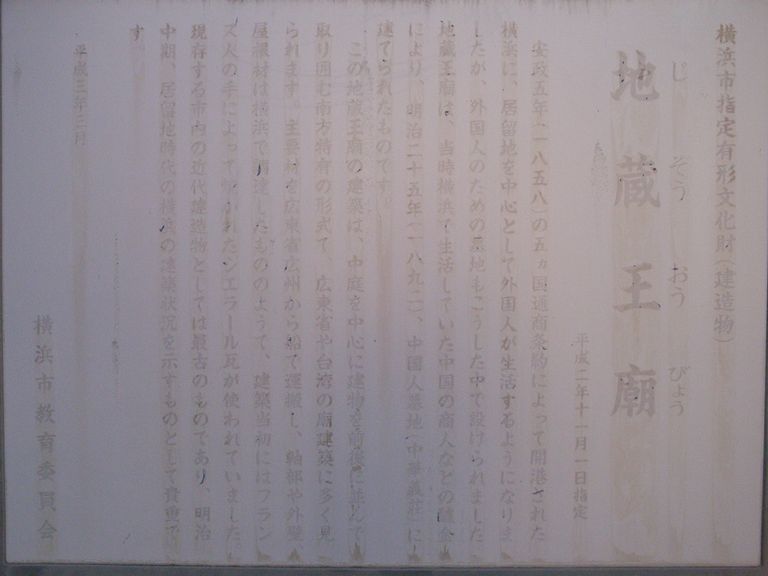 横浜市指定有形文化財(建造物)
じぞうおうびょう
地蔵王廟
平成二年十一月一日指定
安政五年(一八五八)の五ヵ国通商条約によって開港された
横浜に、居留地を中心として外国人が生活するようになりま
したが、外国人のための墓地もこうした中で設けられました
地蔵王廟は、当時横浜で生活していた中国の商人などの醵金
により、明治二十五年(一八九二)、中国人墓地(中華義荘)に
建てられたものです。
この地蔵王廟の建築は、中庭を中心に建物を前後に並んで
取り囲む南方特有の形式で、広東省や台湾の廟建築に多く見
られます。主要材を広東省広州から船で運搬し、軸部や外壁
屋根材は横浜で調達したもののようで、建築当初にはフラン
ス人の手によって焼かれたジェラール瓦が使われていました。
現存する市内の近代建造物としては最古のものであり、明治
中期、居留地時代の横浜の建築状況を示すものとして貴重で
す。
平成三年三月
横浜市教育委員会